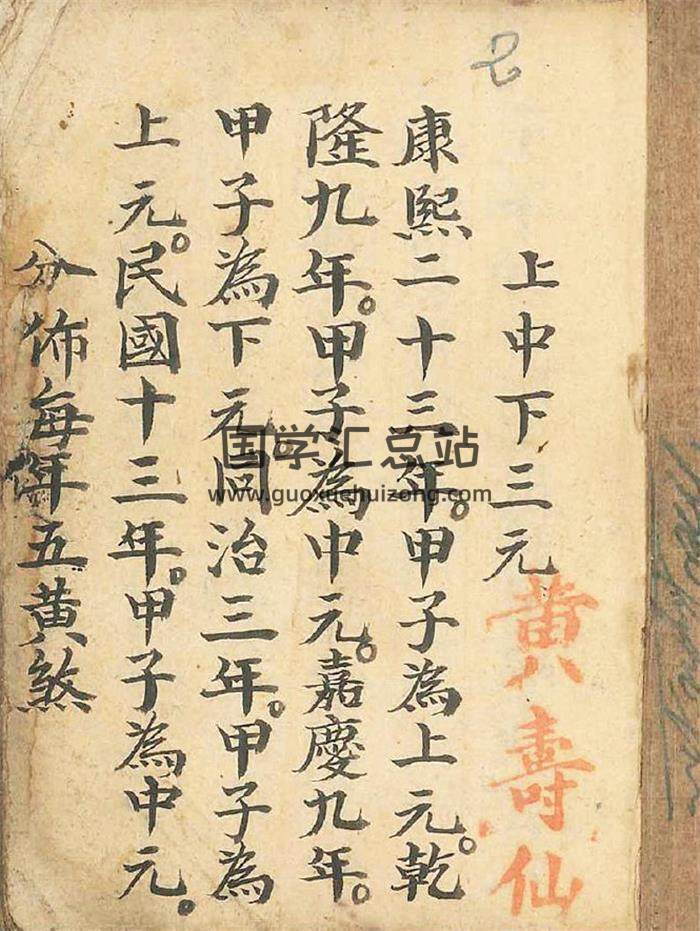 上中下三元
黄壽仙
康熙二十三年。甲子為上元。乾
隆九年。甲子為中元。嘉慶九年。
甲子為下元同治三年。甲子為
上元。民國十三年。甲子為中元。
分佈每年五黃煞
国学汇总站
www.guoxuehuizong.com